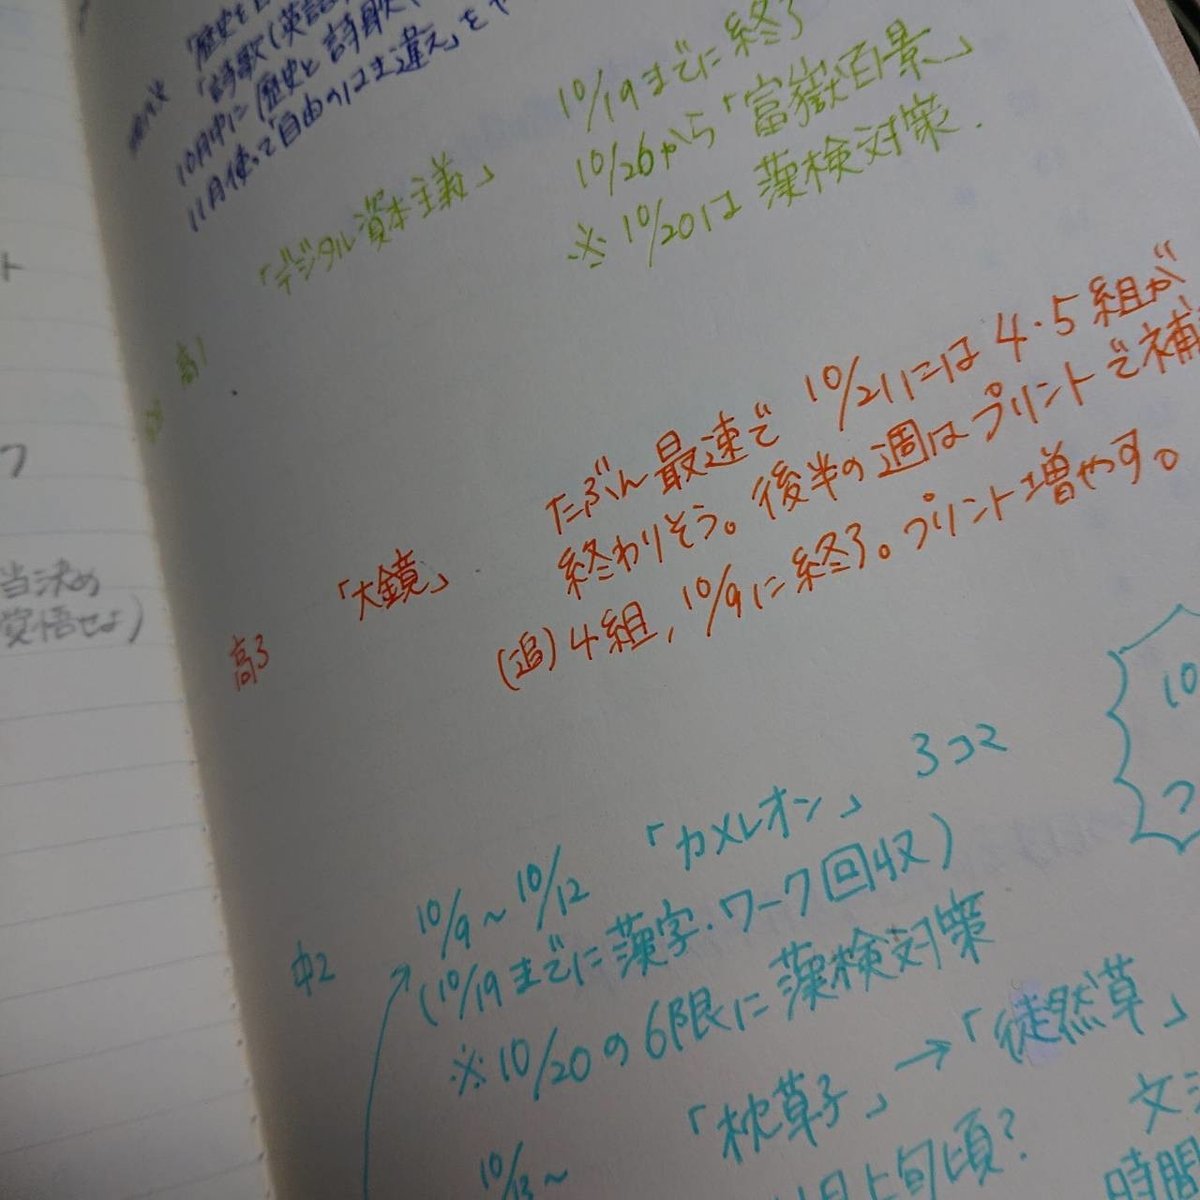 「歴史を
「詩歌(英語
10月中に「歴史と詩歌
11月使って「自由のはき違え」を
「デジタル資本主義」
10/19までに終了
10/26から「富嶽百景」
※10/20は漢検対策.
高1
「大鏡」
たぶん最速で10/21には4・5組が
終わりそう。後半の週はプリントで補
(追)4組,10/9に終了。プリント増やす。
高3
中2
10/9~10/12 「カメレオン」 3コマ
(10/19までに漢字・ワーク回収)
※10/20の6限に漢検対策
10/13~ 「枕草子」→「徒然草」
月上旬頃?
時間
当決め
覚悟せよ)
10